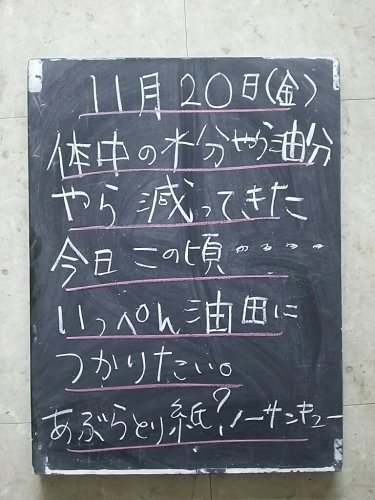 11月20日(金)
体中の水分やら油分
やら減ってきた
今日この頃…
いっぺん油田に
つかりたい。
あぶらとり紙?ノーサンキュー